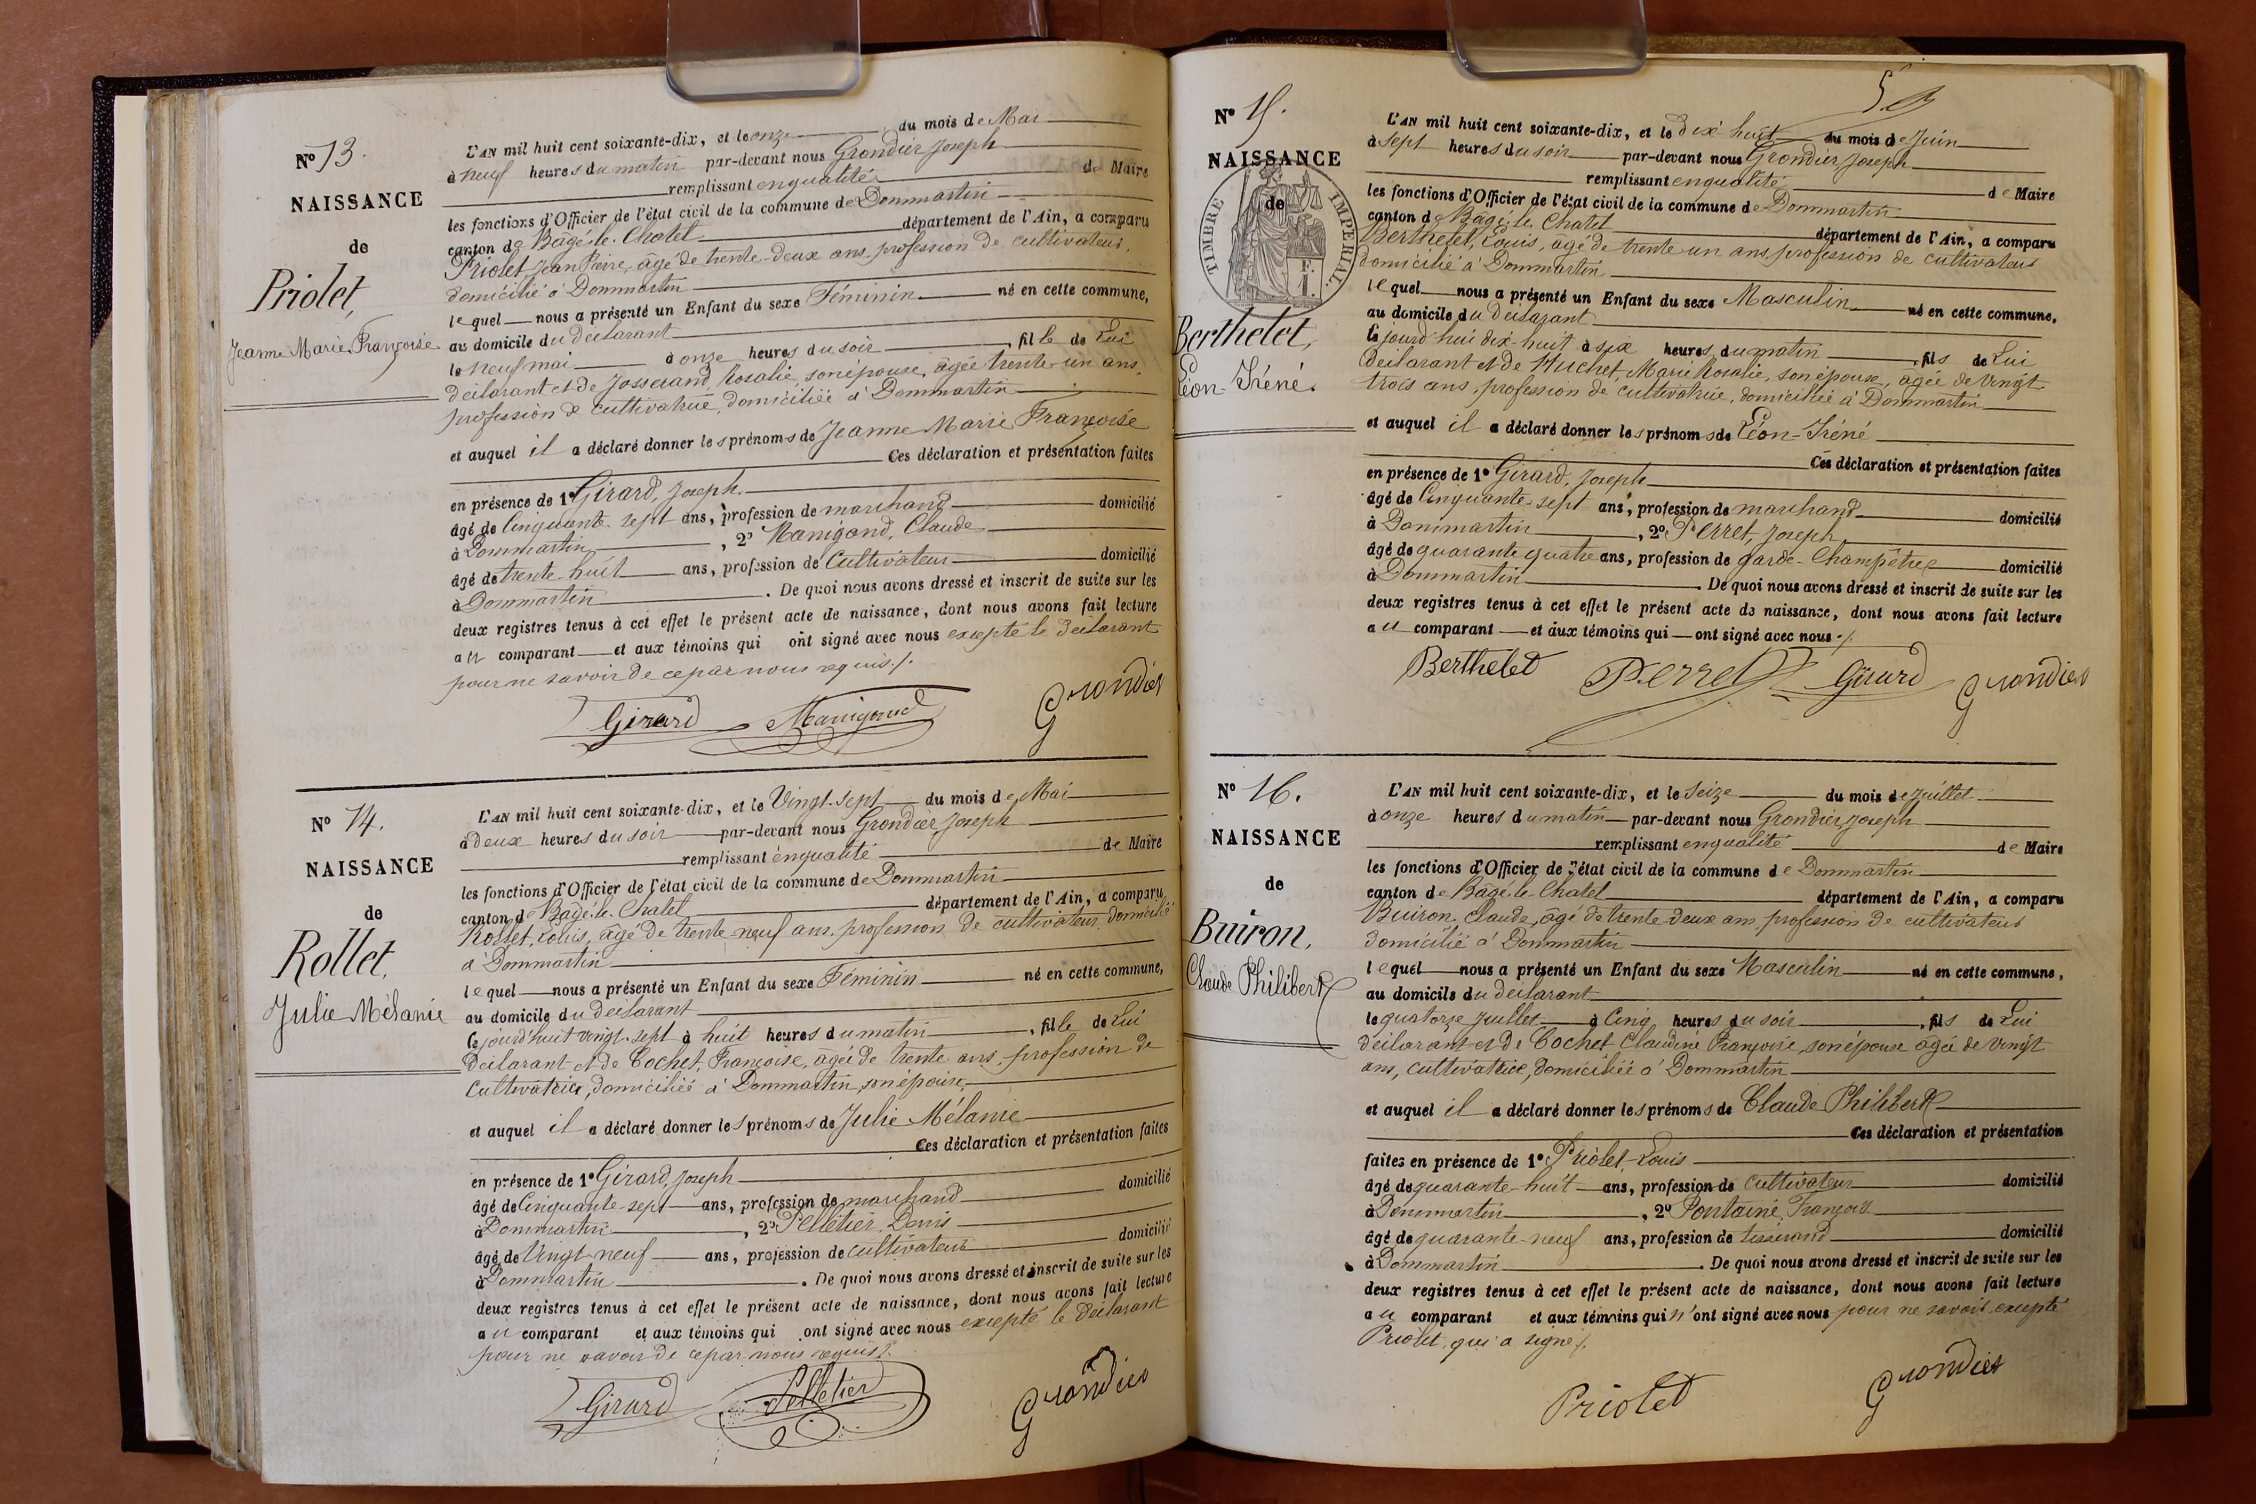 N° 13.
NAISSANCE
de
Priolet,
Jeanne Marie Françoise
L'AN mil huit cent soixante-dix, et le onze du mois de Mai
à neuf heures du matin par-devant nous Grondier Joseph
remplissant en qualité de Maire
les fonctions d'Officier de l'état civil de la commune de Dommartin
canton de Bâgé-le-Chatel département de l'Ain, a comparu
Priolet Jean Pierre, âgé de trente-deux ans, profession de cultivateur,
domicilié à Dommartin
lequel nous a présenté un Enfant du sexe Féminin né en cette commune,
au domicile du déclarant
le neuf mai à onze heures du soir, fille de Lui
déclarant et de Josserand, Rosalie, son épouse, âgée trente-un ans,
profession de cultivatrice, domiciliée à Dommartin
et auquel il a déclaré donner les prénoms de Jeanne Marie Françoise
Ces déclaration et présentation faites
en présence de 1° Girard, Joseph
âgé de Cinquante-sept ans, profession de marchand domicilié
à Dommartin, 2° Manigand, Claude
âgé de trente-huit ans, profession de Cultivateur domicilié
à Dommartin. De quoi nous avons dressé et inscrit de suite sur les
deux registres tenus à cet effet le présent acte de naissance, dont nous avons fait lecture
au comparant et aux témoins qui ont signé avec nous excepté le déclarant
pour ne savoir de ce par nous requis./.
Girard Manigand Grondier
N° 14.
NAISSANCE
de
Rollet,
Julie Mélanie
L'AN mil huit cent soixante-dix, et le Vingt-sept du mois de Mai
à deux heures du soir par-devant nous Grondier Joseph
remplissant en qualité de Maire
les fonctions d'Officier de l'état civil de la commune de Dommartin
canton de Bâgé-le-Chatel département de l'Ain, a comparu
Rollet, Louis, âgé de trente-neuf ans, profession de cultivateur, domicilié
à Dommartin
lequel nous a présenté un Enfant du sexe Féminin né en cette commune,
au domicile du déclarant
Cejourd'huit vingt-sept à huit heures du matin, fille de Lui
déclarant et de Cochet, Françoise, âgée de trente ans, profession de
Cultivatrice, domiciliée à Dommartin, son épouse,
et auquel il a déclaré donner les prénoms de Julie Mélanie
Ces déclaration et présentation faites
en présence de 1° Girard, Joseph
âgé de Cinquante-sept ans, profession de marchand domicilié
à Dommartin, 2° Pelletier Denis
âgé de Vingt-neuf ans, profession de cultivateur domicilié
à Dommartin. De quoi nous avons dressé et inscrit de suite sur les
deux registres tenus à cet effet le présent acte de naissance, dont nous avons fait lecture
au comparant et aux témoins qui ont signé avec nous excepté le déclarant
pour ne savoir de ce par nous requis./.
Girard Pelletier Grondier
5
N° 15.
NAISSANCE
de
TIMBRE IMPERIAL.
F.
1.
Berthelet,
Léon-Iréné.
L'AN mil huit cent soixante-dix, et le dix huit du mois de Juin
à sept heures du soir par-devant nous Grondier Joseph
remplissant en qualité de Maire
les fonctions d'Officier de l'état civil de la commune de Dommartin
canton de Bâgé-le-Chatel département de l'Ain, a comparu
Berthelet, Louis, âgé de trente un ans, profession de cultivateur
domicilié à Dommartin
lequel nous a présenté un Enfant du sexe Masculin né en cette commune,
au domicile du déclarant
Cejourd'hui dix-huit à six heures du matin, fils de Lui
déclarant et de Huchet, Marie Rosalie, son épouse, âgée de Vingt
trois ans, profession de cultivatrice, domiciliée à Dommartin
et auquel il a déclaré donner les prénoms de Léon-Iréné
Ces déclaration et présentation faites
en présence de 1° Girard, Joseph
âgé de Cinquante-sept ans, profession de marchand domicilié
à Dommartin, 2° Perret, Joseph
âgé de quarante quatre ans, profession de garde-Champêtre domicilié
à Dommartin. De quoi nous avons dressé et inscrit de suite sur les
deux registres tenus à cet effet le présent acte de naissance, dont nous avons fait lecture
au comparant et aux témoins qui ont signé avec nous./.
Berthelet Perret Girard Grondier
N° 16.
NAISSANCE
de
Buiron,
Claude Philibert
L'AN mil huit cent soixante-dix, et le Seize du mois de Juillet
à onze heures du matin par-devant nous Grondier, Joseph
remplissant en qualité de Maire
les fonctions d'Officier de l'état civil de la commune de Dommartin
canton de Bâgé-le-Chatel département de l'Ain, a comparu
Buiron, Claude, âgé de trente-deux ans, profession de cultivateur
domicilié à Dommartin
lequel nous a présenté un Enfant du sexe Masculin né en cette commune,
au domicile du déclarant
le quatorze Juillet à Cinq heures du soir, fils de Lui
déclarant et de Cochet Claudine Françoise, son épouse âgée de vingt
ans, cultivatrice, domiciliée à Dommartin
et auquel il a déclaré donner les prénoms de Claude Philibert
Ces déclaration et présentation
faites en présence de 1° Priolet, Louis
âgé de quarante-huit ans, profession de cultivateur domicilié
à Dommartin, 2° Pontaine, François
âgé de quarante-neuf ans, profession de tisserand domicilié
à Dommartin. De quoi nous avons dressé et inscrit de suite sur les
deux registres tenus à cet effet le présent acte de naissance, dont nous avons fait lecture
au comparant et aux témoins qui n'ont signé avec nous pour ne savoir, excepté
Priolet qui a signé./.
Priolet Grondier